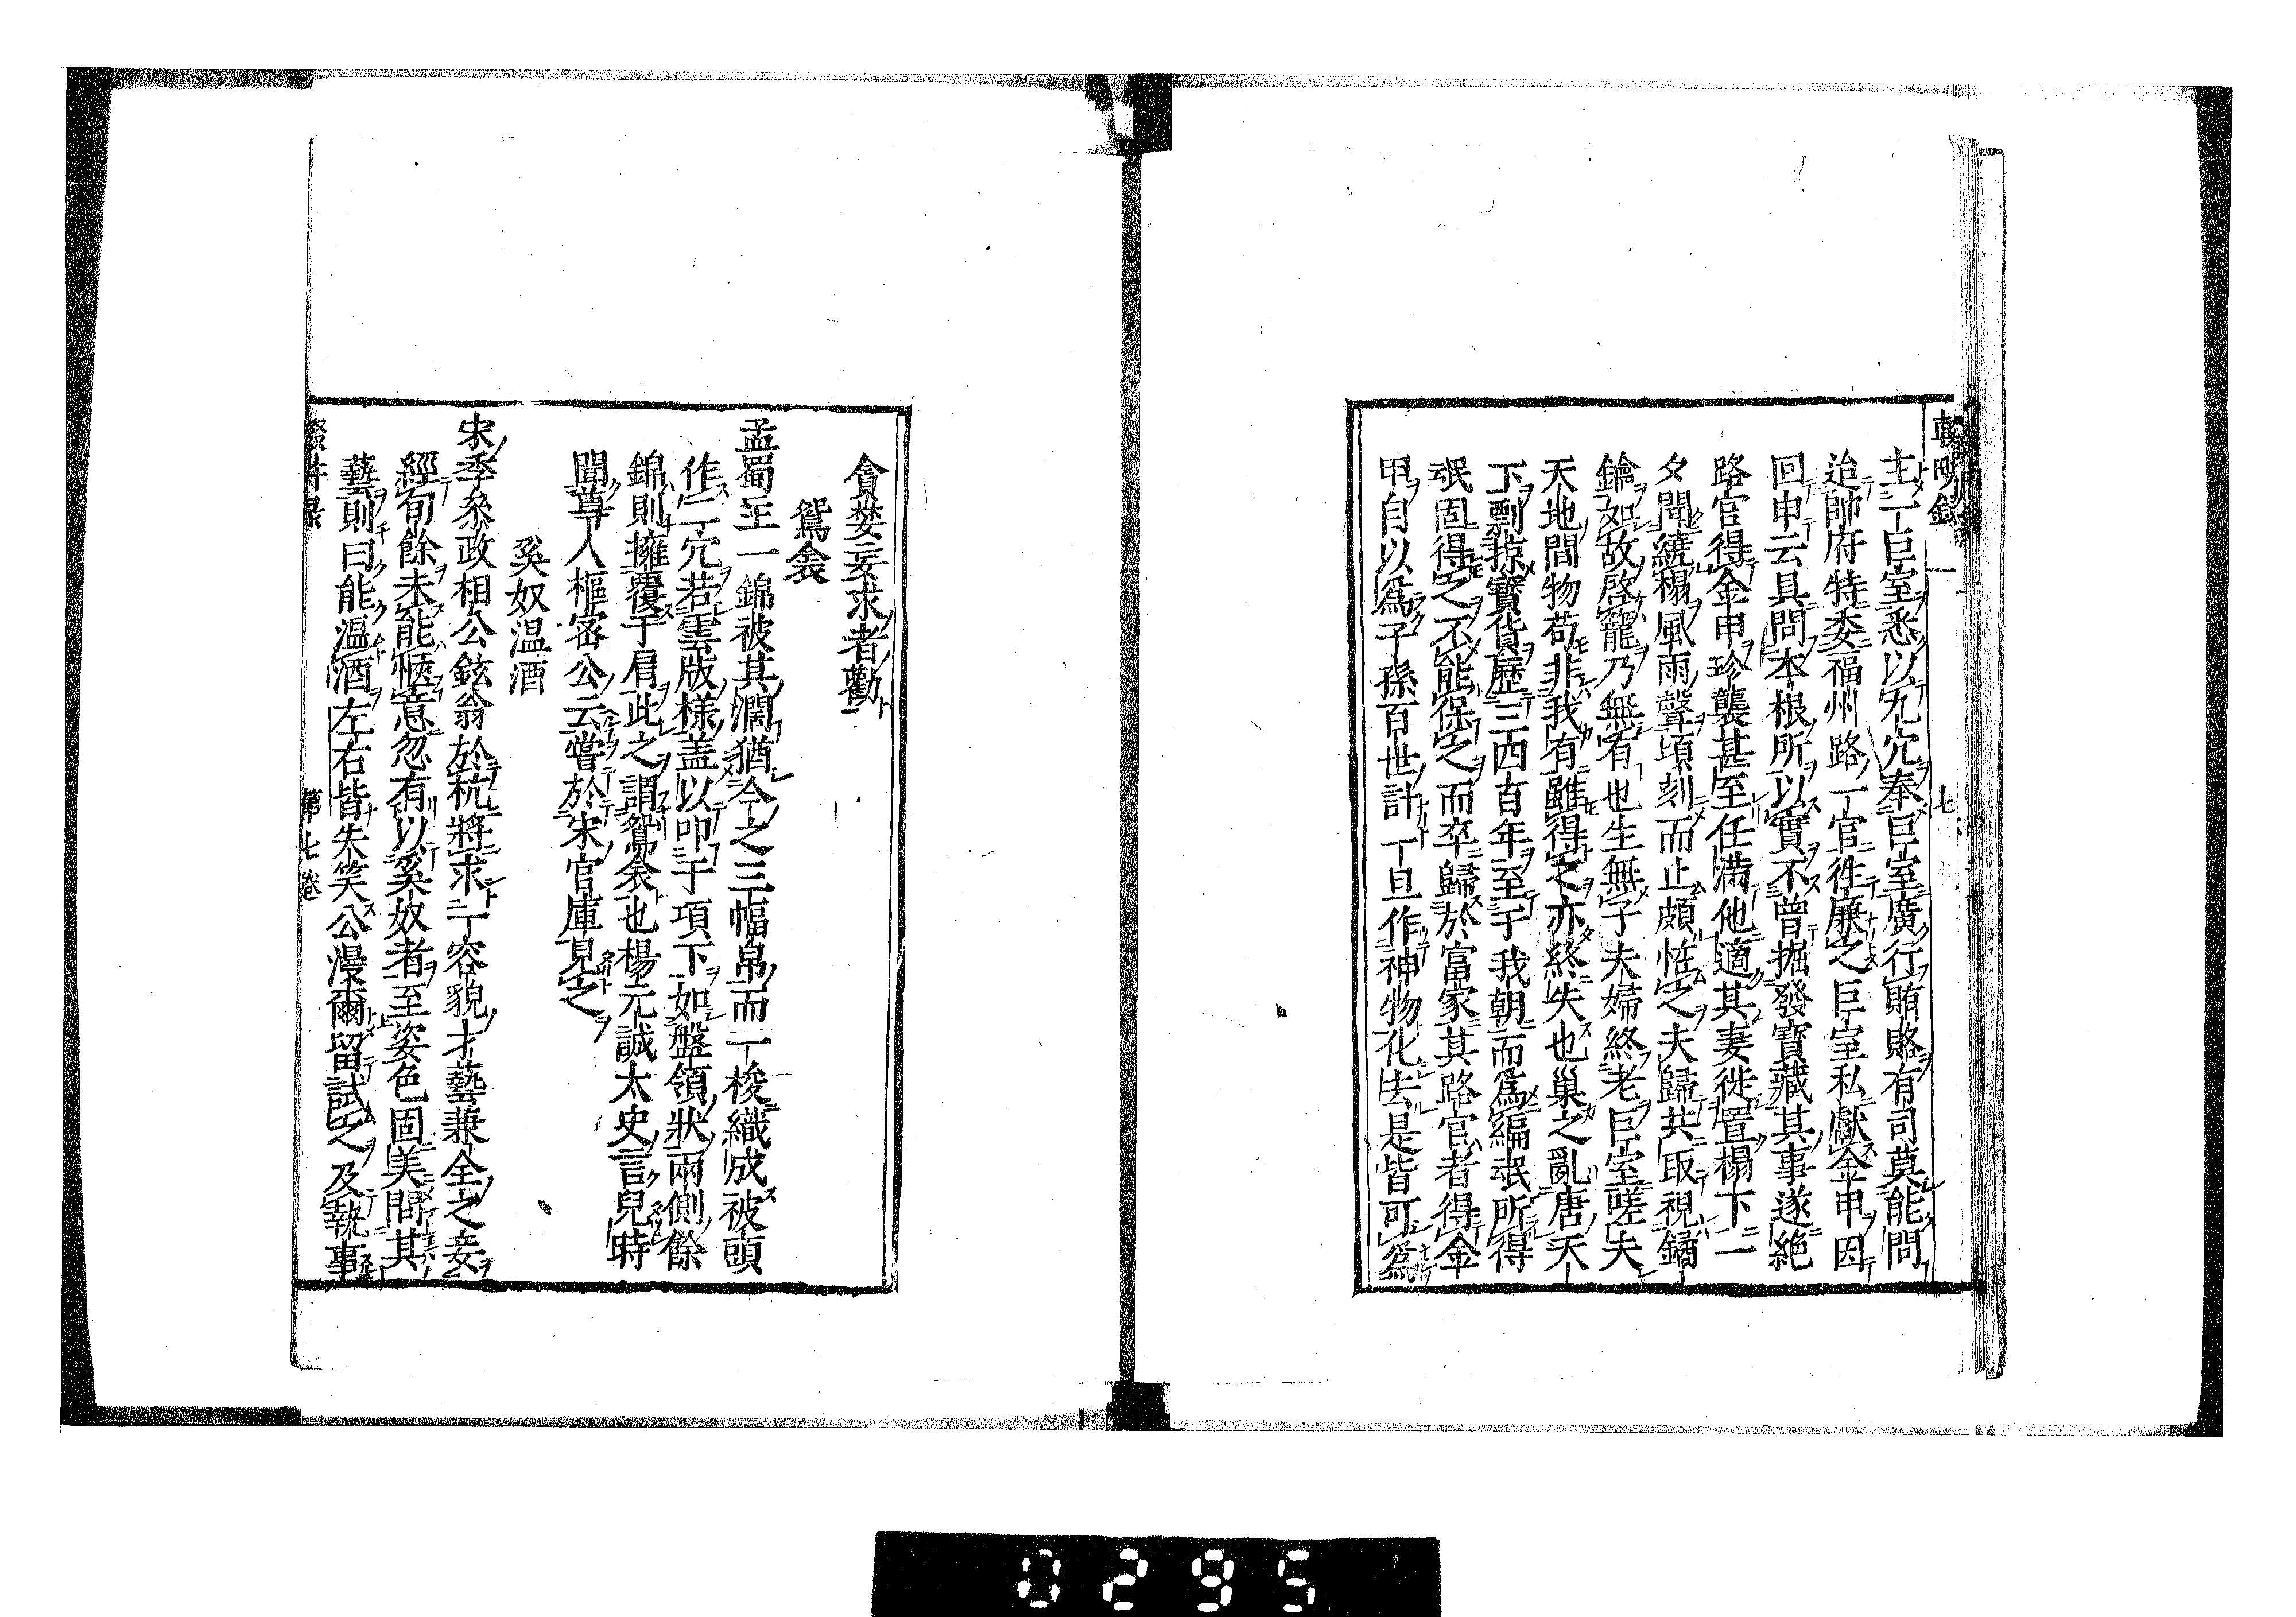 主一巨室悉以冗穴奉巨室廣行賄賂有司莫能問
迨帥府特委福州路一官徃廉之巨室私獻金甲因
回申云具問本根所以實不曾掘發寶藏其事遂絶
路官得金甲珍襲甚至任滿他適其妻徙置榻下一
夕聞繞榻風雨聲頃刻而止頗恠之夫歸共取視鐍
鑰如故啓籠乃無有也生無子夫婦終老巨室嗟夫
天地間物苟非我有雖得之亦終失也巢之亂唐天
下剽掠寶貨歷三四百年至于我朝而爲編氓所得
氓固得之不能保之而卒歸於富家其路官者得金
甲自以爲子孫百世計一旦作神物化去是皆可爲
貪婪妄求者勸
鴛衾
孟蜀主一錦被其濶猶今之三幅帛而一梭織成被頭
作二穴若雲版樣盖以叩于項下如盤領狀兩側餘
錦則擁覆于肩此之謂鴛衾也楊元誠太史言兒時
聞尊人樞密公云嘗於宋官庫見之
奚奴温酒
宋季參政相公鉉翁於杭將求一容貌才藝兼全之妾
經旬餘未能愜意忽有以奚奴者至姿色固美問其
藝則曰能温酒左右皆失笑公漫爾留試之及執事
輟畊录
第七卷
0295